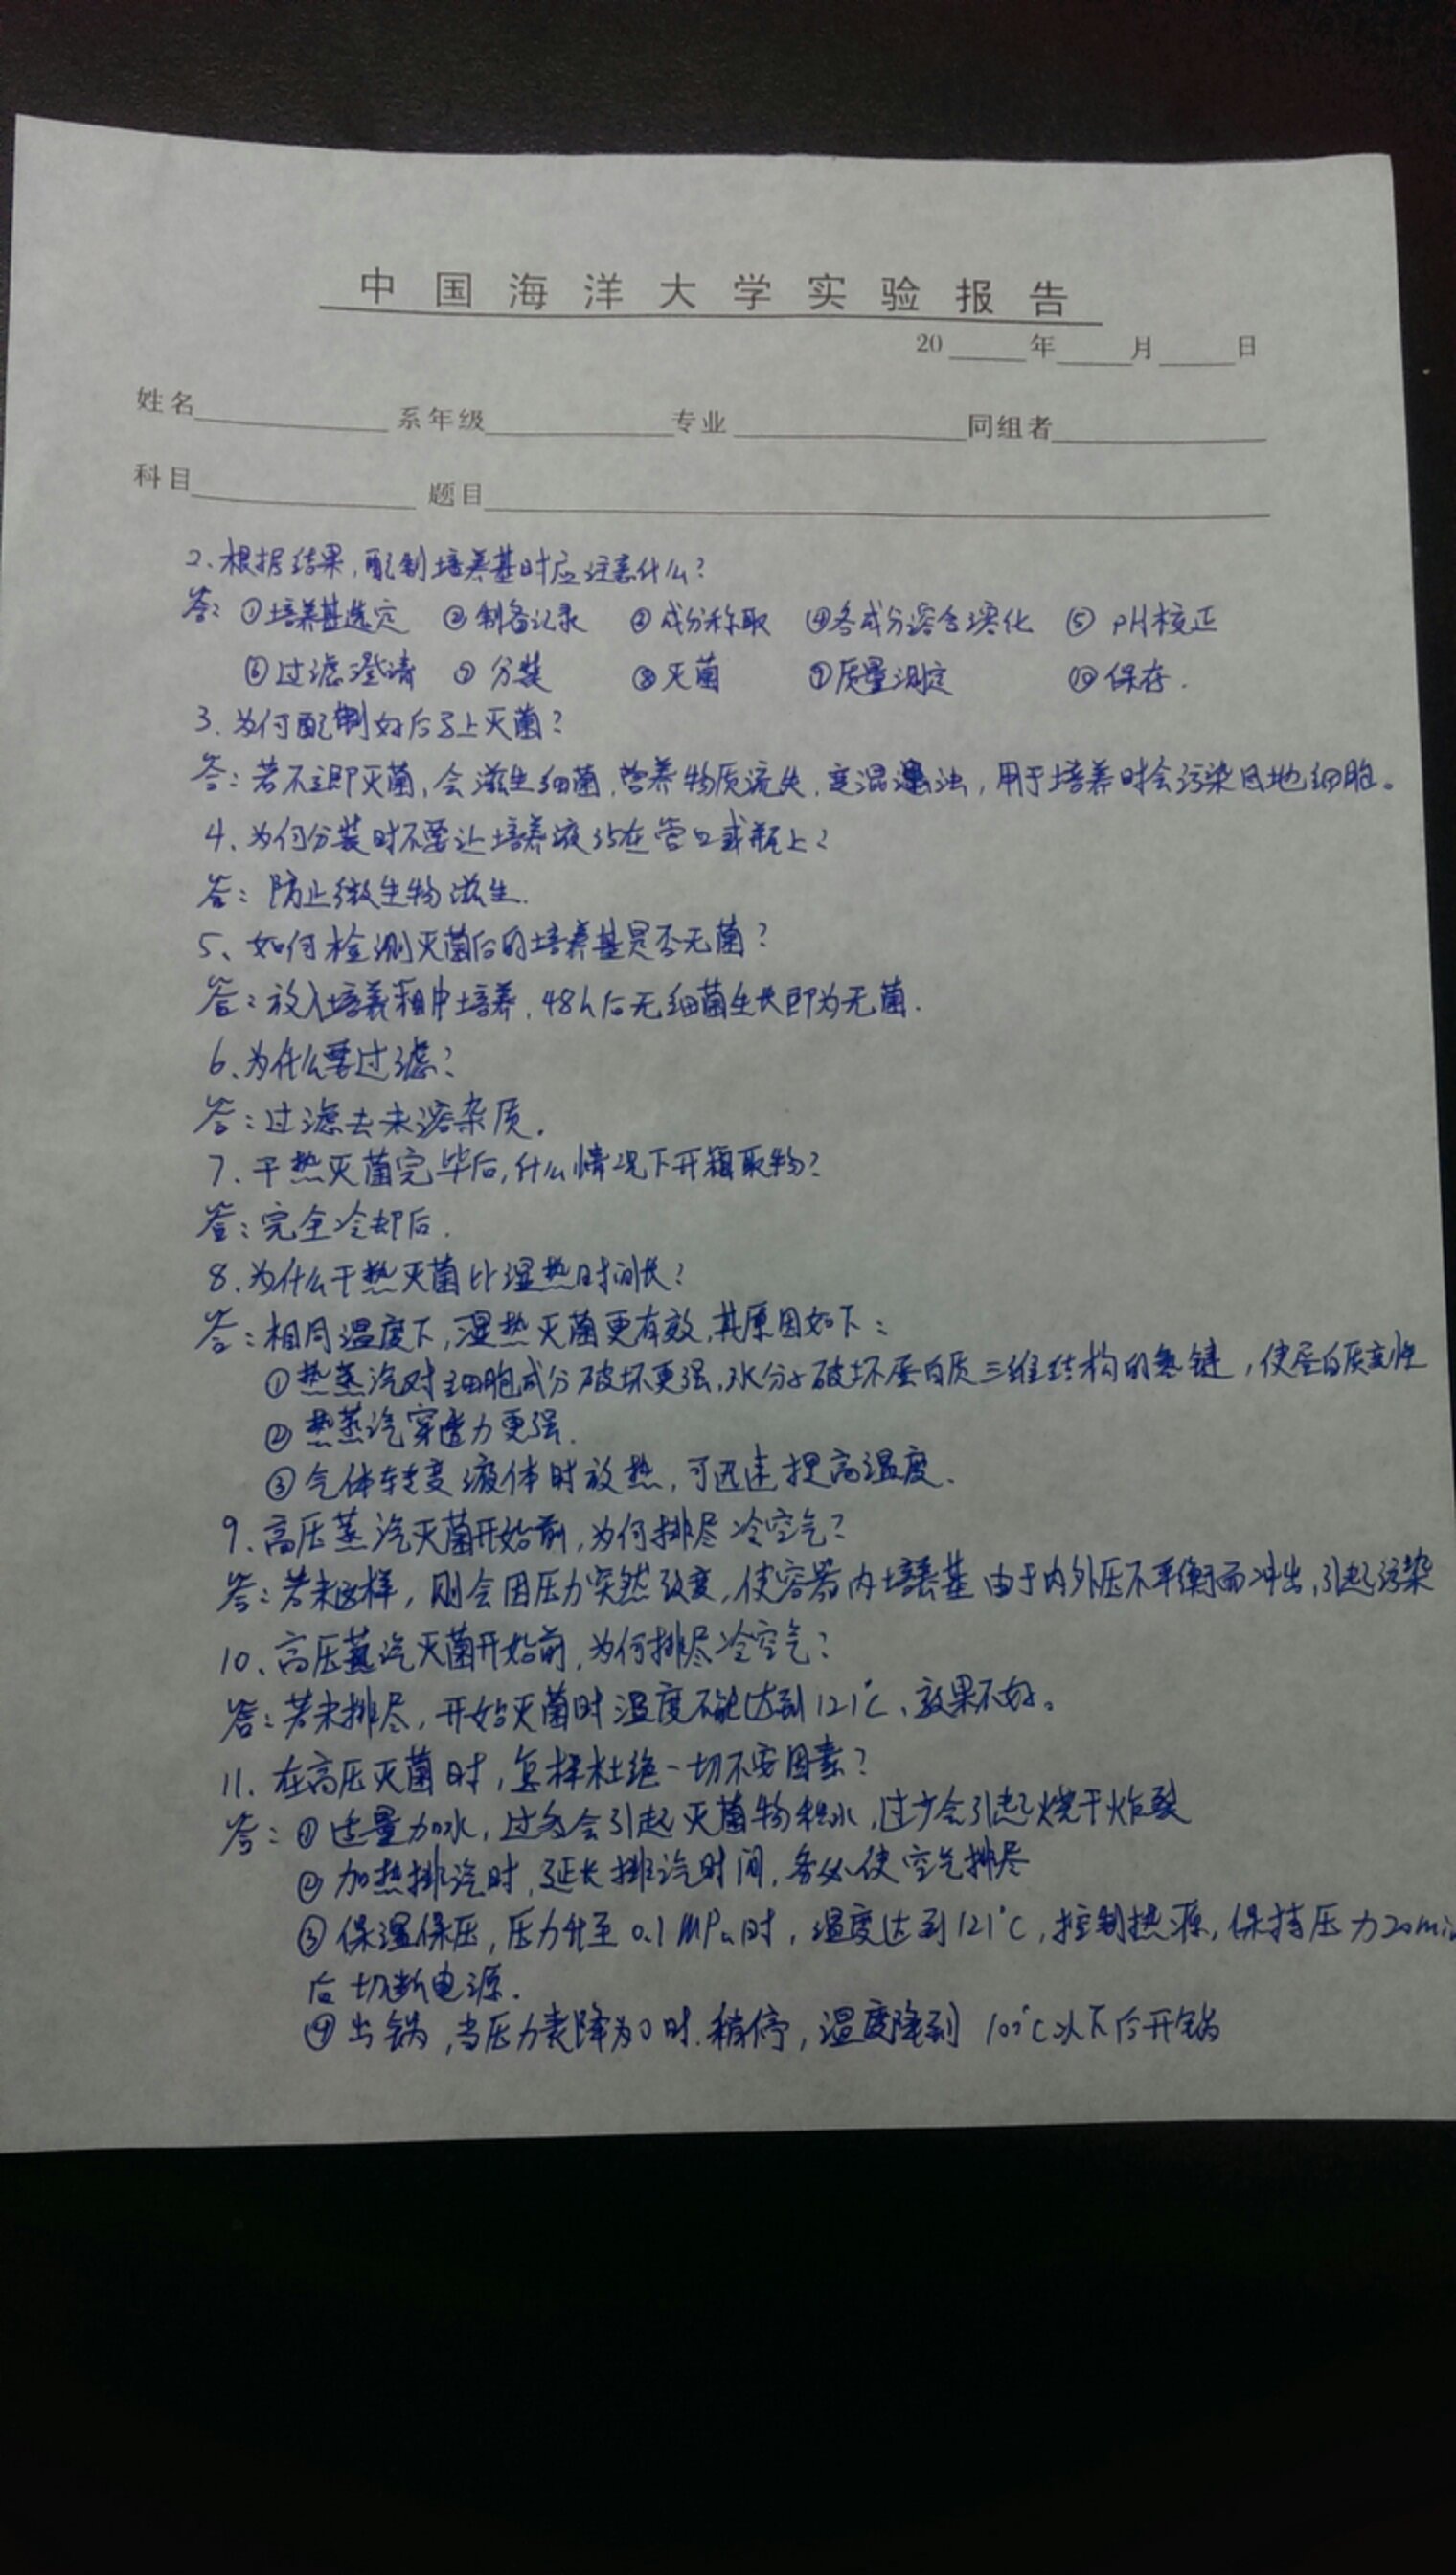 中国海洋大学实验报告
20____年____月____日
姓名________系年级________专业________同组者________
科目________题目________
2、根据结果，配制培养基时应注意什么？
答：①培养基选定 ②制备记录 ③成分称取 ④各成分溶合溶化 ⑤ pH校正
⑥过滤澄清 ⑦分装 ⑧灭菌 ⑨质量测定 ⑩保存.
3.为何配制好后马上灭菌？
答：若不立即灭菌，会滋生细菌，营养物质流失，变混浊，用于培养时会污染目地细胞。
4、为何分装时不要让培养液沾在管口或瓶上？
答：防止微生物滋生.
5、如何检测灭菌后的培养基是否无菌？
答：放入培养箱中培养，48h后无细菌生长即为无菌.
6、为什么要过滤？
答：过滤去未溶杂质.
7.干热灭菌完毕后，什么情况下开箱取物？
答：完全冷却后.
8.为什么干热灭菌比湿热时间长？
答：相同温度下，湿热灭菌更有效，其原因如下：
①热蒸汽对细胞成分破坏更强，水分子破坏蛋白质三维结构的氢键，使蛋白质变性
②热蒸汽穿透力更强.
③气体转变液体时放热，可迅速提高温度.
9.高压蒸汽灭菌开始前，为何排尽冷空气？
答：若未这样，则会因压力突然改变，使容器内培养基由于内外压不平衡而冲出，引起污染
10、高压蒸汽灭菌开始前，为何排尽冷空气？
答：若未排尽，开始灭菌时温度不能达到121℃、效果不好。
11.在高压灭菌时，怎样杜绝一切不安因素？
答：①适量加水，过多会引起灭菌物积水，过少会引起烧干炸裂
②加热排汽时，延长排汽时间，务必使空气排尽
③保温保压，压力升至0.1MPa时，温度达到121℃，控制热源，保持压力20min
后切断电源.
④出锅，当压力表降为0时.稍停，温度降到100℃以下后开锅